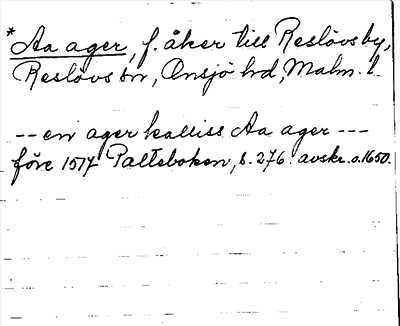 *Aa ager, f. åker till Reslövsby,
Reslövs sn, Onsjö hd, Malm. l.
-- en ager kalliss Aa ager ---
före 1517 Palteboken, s. 276. avskr. o. 1650.